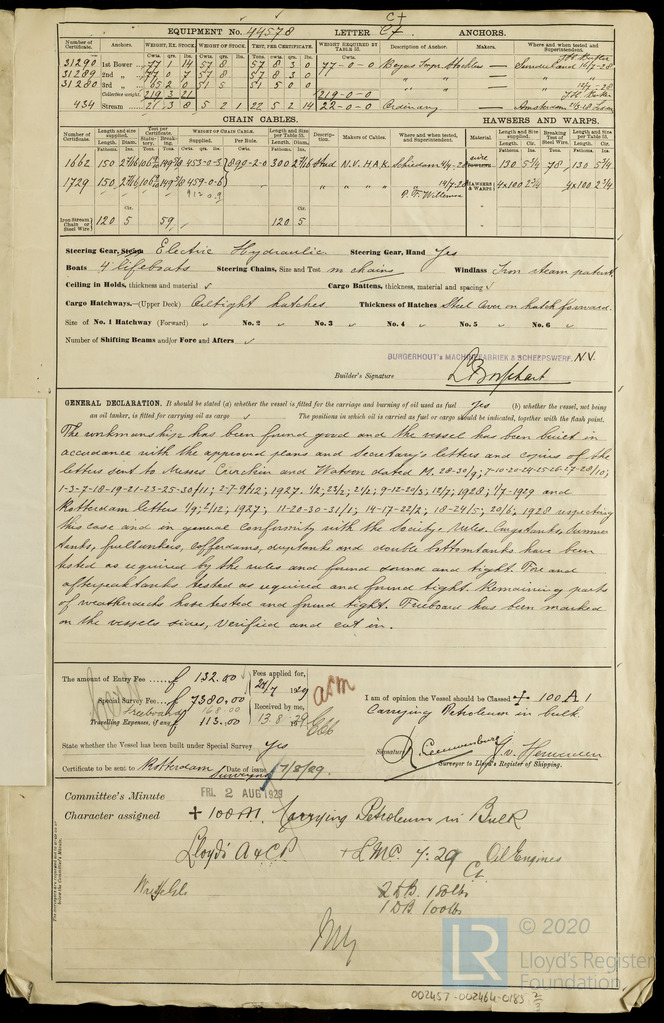 C†
EQUIPMENT No. 44578 LETTER C† ANCHORS.
Number of Certificate. Anchors. WEIGHT, EX. STOCK. WEIGHT OF STOCK. TEST, PER CERTIFICATE. WEIGHT REQUIRED BY TABLE 53. Description of Anchor. Makers. Where and when tested and Superintendent.
Cwts. qrs. lbs. Cwts. qrs. lbs. Tons. cwts. qrs. lbs. Cwts. qrs. lbs.
31290 1st Bower 77 1 14 57 8 57 8 3 0 77-0-0 Sunderland
31289 2nd „ 77 0 7 57 8 57 8 3 0
31280 3rd „ 65 2 0 51 5 51 5 0 0
Collective weight 219 3 21 219-0-0
434 Stream 21 3 8 5 2 1 22 5 2 14 22-0-0 Ordinary — Amsterdam
CHAIN CABLES. HAWSERS AND WARPS.
Number of Certificate. Length and size supplied. Test per Certificate. WEIGHT OF CHAIN CABLE. Length and size per Table 53. Description. Makers of Cables. Where and when tested, and Superintendent. Material. Length and size supplied. Breaking Test of Steel Wire. Length and size per Table 53.
Fathoms. Diam. Tons. Supplied. Per Rule. Fathoms. Diam.
1662 150 2 7/16 453-0-3 899-2-0 300 2 7/16 Stud N.V. H.A.K. Schiedam wire 130 5¼ 78 130 5¼
1729 150 2 7/16 459-0-6 „ „ „ „ HAWSERS & WARPS 4x100 2¾ 4x100 2¾
912-0-9 P. F. Willemse
Iron Stream Chain or Steel Wire 120 5 59 120 5
Steering Gear, Steam Electric Hydraulic Steering Gear, Hand Yes
Boats 4 lifeboats Steering Chains, Size and Test no chains Windlass Iron steam patent
Ceiling in Holds, thickness and material ✓ Cargo Battens, thickness, material and spacing ✓
Cargo Hatchways.—(Upper Deck) Oiltight hatches Thickness of Hatches Steel cover on hatch forward.
Size of No. 1 Hatchway (Forward) No. 2 No. 3 No. 4 No. 5 No. 6
Number of Shifting Beams and/or Fore and Afters ✓
BURGERHOUT'S MACHINEFABRIEK & SCHEEPSWERF, N.V.
Builder's Signature
GENERAL DECLARATION. It should be stated (a) whether the vessel is fitted for the carriage and burning of oil used as fuel yes. (b) whether the vessel, not being
an oil tanker, is fitted for carrying oil as cargo ✓ The positions in which oil is carried as fuel or cargo should be indicated, together with the flash point.
The workmanship has been found good and the vessel has been built in
accordance with the approved plans and Secretary's letters and copies of the
letters sent to Messrs Cuirchin and Watson dated M. 28-30/9; 7-10-20-24-25-26-27-28/10;
1-3-7-18-19-21-23-25-30/11; 2-7-9/12; 1927. 1/2; 23/2; 21/2; 9-12-20/3; 12/7; 1928; 1/7-1929 and
Rotterdam letters 1/9; 2/12; 1927; 11-20-30-31/1; 14-17-22/2; 18-29/5; 20/6, 1928 respecting
this case and in general conformity with the Society's rules. Cargotanks, summer
tanks, fuelbunkers, cofferdams, deeptanks and double bottomtanks have been
tested as required by the rules and found sound and tight. Fore and
afterpeaktanks tested as required and found tight. Remaining parts
of weatherdecks hose tested and found tight. Freeboard has been marked
on the vessels sides, verified and cut in.
The amount of Entry Fee ... £ 132.00 Fees applied for, 24/7 1929 arm
Special Survey Fee ... £ 7380.00 Received by me,
Freeboard 168.00
Travelling Expenses, if any £ 113.00 13.8 1929
I am of opinion the Vessel should be Classed ✠ 100 A 1
Carrying Petroleum in bulk.
State whether the Vessel has been built under Special Survey Yes
Signature
Surveyor to Lloyd's Register of Shipping.
Certificate to be sent to Rotterdam Surveyors Date of issue 7/8/29.
Committee's Minute FRI. 2 AUG 1929
Character assigned ✠ 100A1. Carrying Petroleum in Bulk
Lloyd's A & CP. + LMC. 7.29 Oil Engines
C†.
2 DB. 180 lbs
1 DB. 100 lbs
LR © 2020
Lloyd's Register
Foundation
002457-002464-0185 2/3